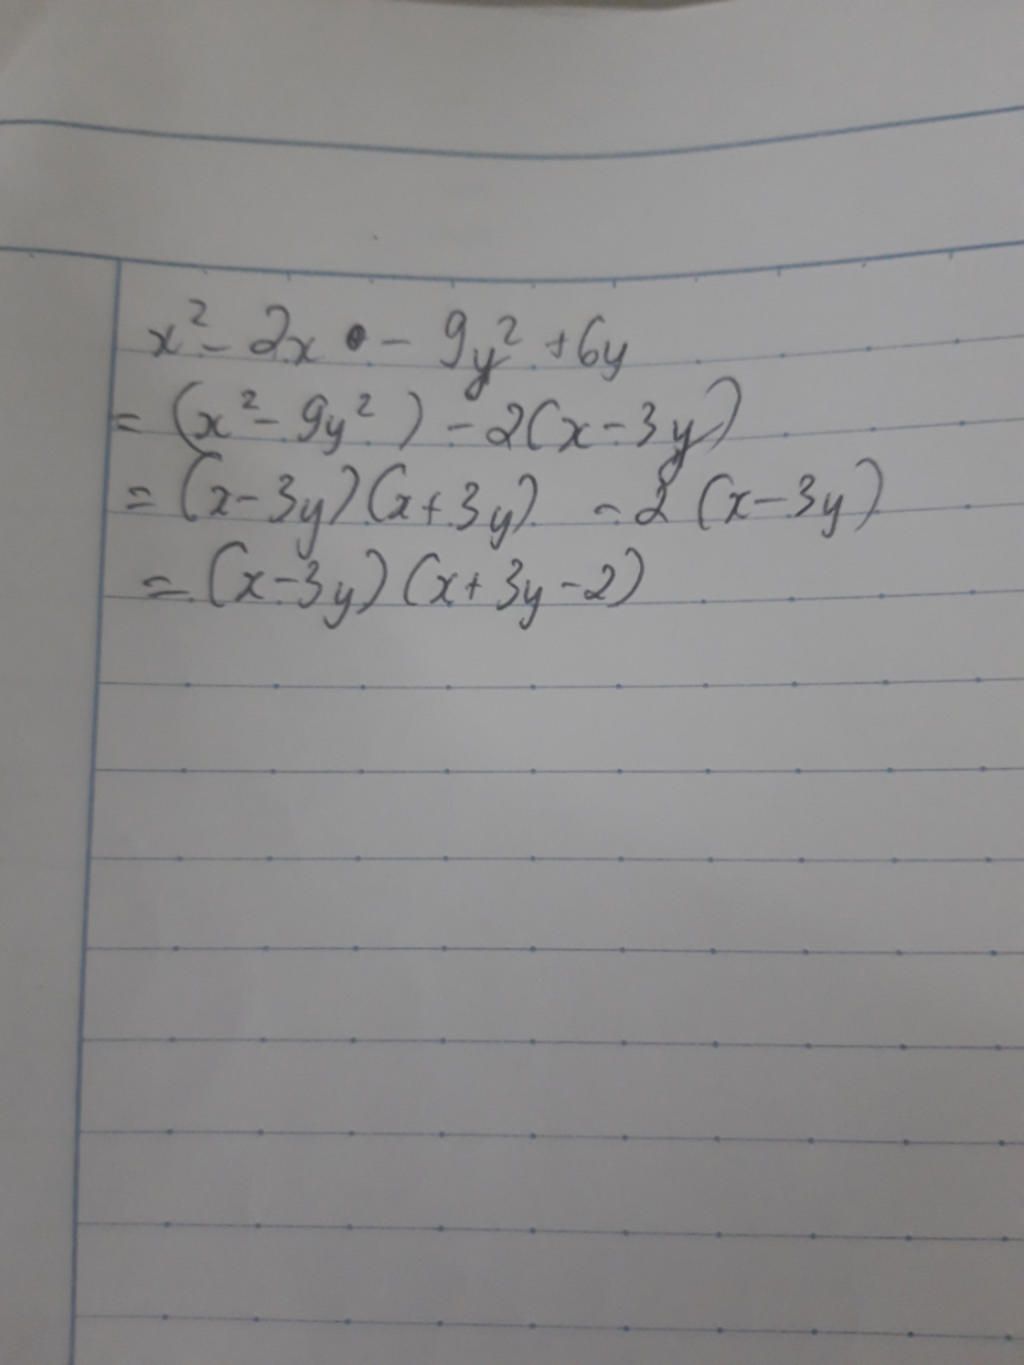 x² - 2x - 9y² + 6y
= (x² - 9y²) - 2(x - 3y)
= (x - 3y)(x + 3y) - 2(x - 3y)
= (x - 3y)(x + 3y - 2)